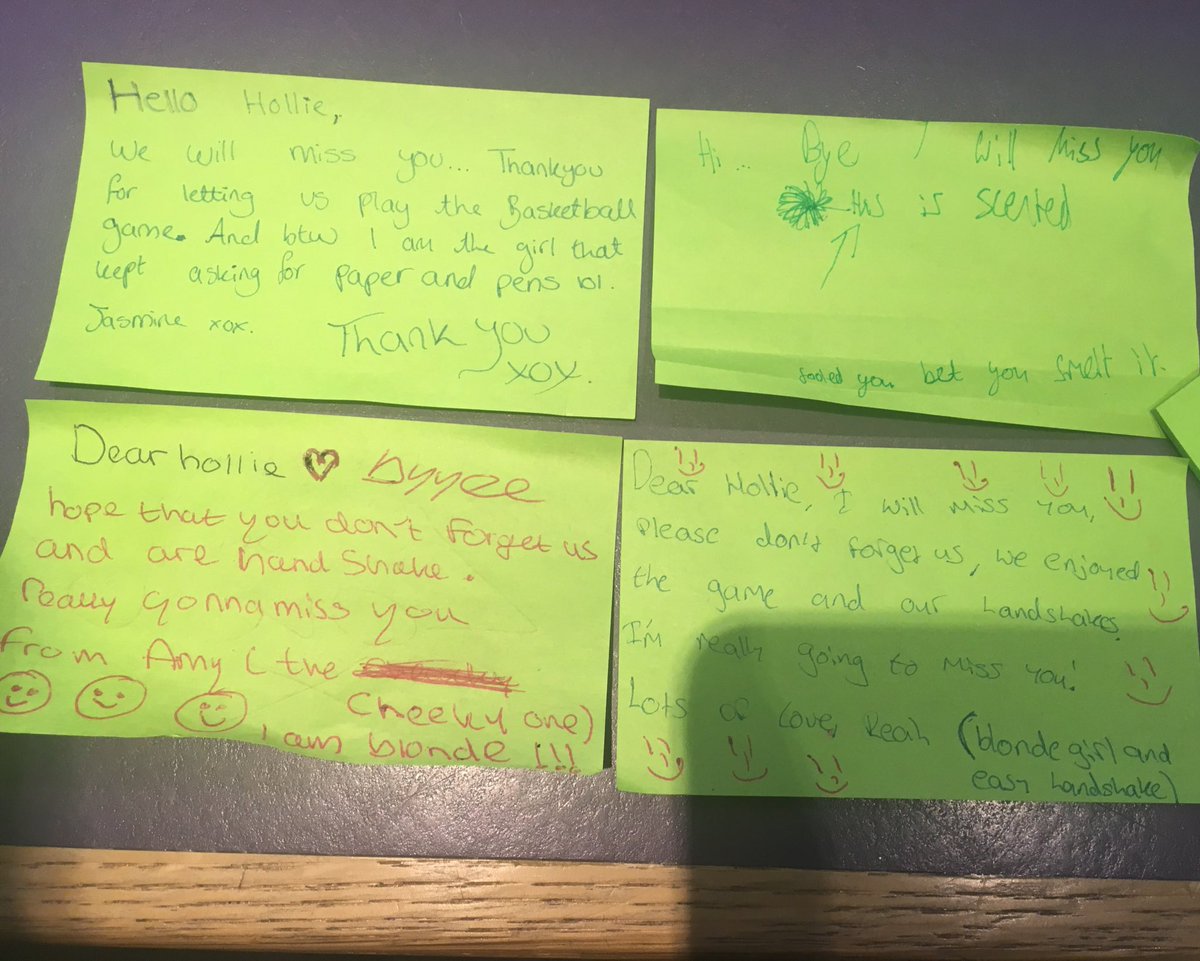 Hello Hollie,
We will miss you... Thankyou
for letting us play the Basketball
game. And btw I am the girl that
kept asking for paper and pens lol.
Jasmine xox.
Thank you
xox.
Hi... Bye I will miss you
this is scented
fooled you bet you smelt it.
Dear hollie
Byyee
hope that you don't forget us
and are hand shake.
Really gonna miss you
from Amy (the
Cheeky one)
i am blonde !!!
Dear Hollie, I will miss you,
Please don't forget us, we enjoyed
the game and our handshakes.
I'm really going to miss you!
Lots of love, Reah (blonde girl and
easy handshake)